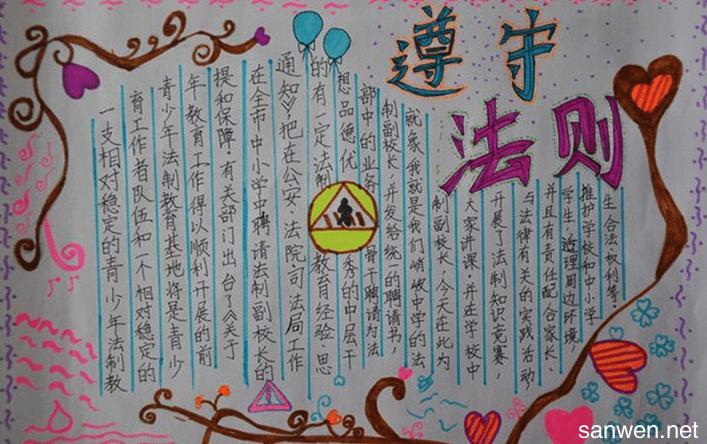 遵守
法则
一支相对稳定的青少年法制教
育工作者队伍和一个相对稳定的
青少年法制教育基地将是青少
年教育工作得以顺利开展的前
提和保障,有关部门出台了《关于
在全市中小学中聘请法制副校长的
通知》,把在公安、法院司法局工作
的有一定法制教育经验、思
想品德优秀的中层干
部中的业务骨干聘请为法
制副校长,并发给统一的聘请书,
就象我就是我们峭岐中学的法
制副校长,今天在此为
大家讲课,并在学校中
开展了法制知识竞赛,
与法律有关的实践活动
并且有责任配合家长、
学生,理周边环境,
护学校和中小学
生合法权利等.
sanwen.net